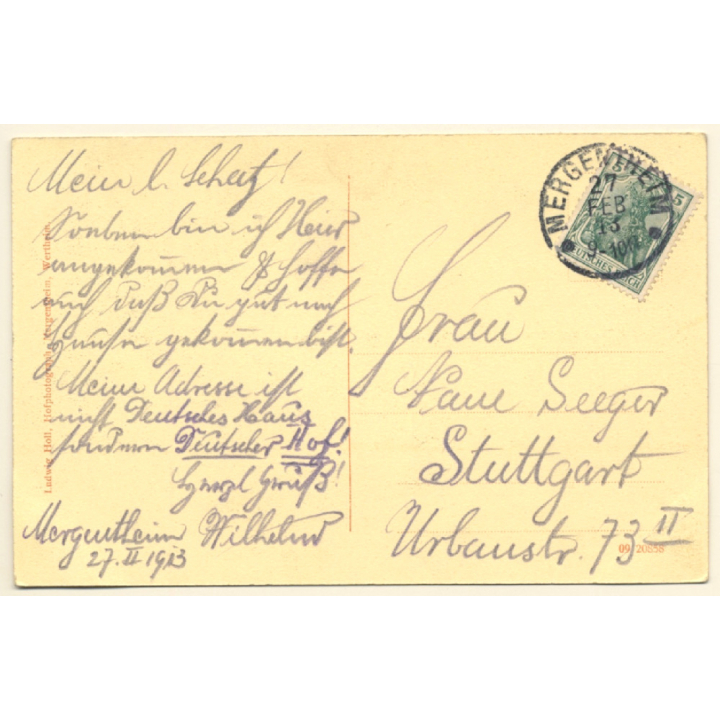 Mein l. Schatz!
Soeben bin ich Hier
angekommen & hoffe
auch daß Du gut nach
Hause gekommen bist.
Meine Adresse ist
nicht Deutsches Haus
sondern Deutscher Hof!
Herzl Gruß!
Wilhelm
Mergentheim
27. II 1913
Ludwig Holl, Hofphotograph, Mergentheim, Wertheim.
MERGENTHEIM
27
FEB
13
5
DEUTSCHES REICH
Frau
Seeger
Stuttgart
Urbanstr. 73 II
09 20858